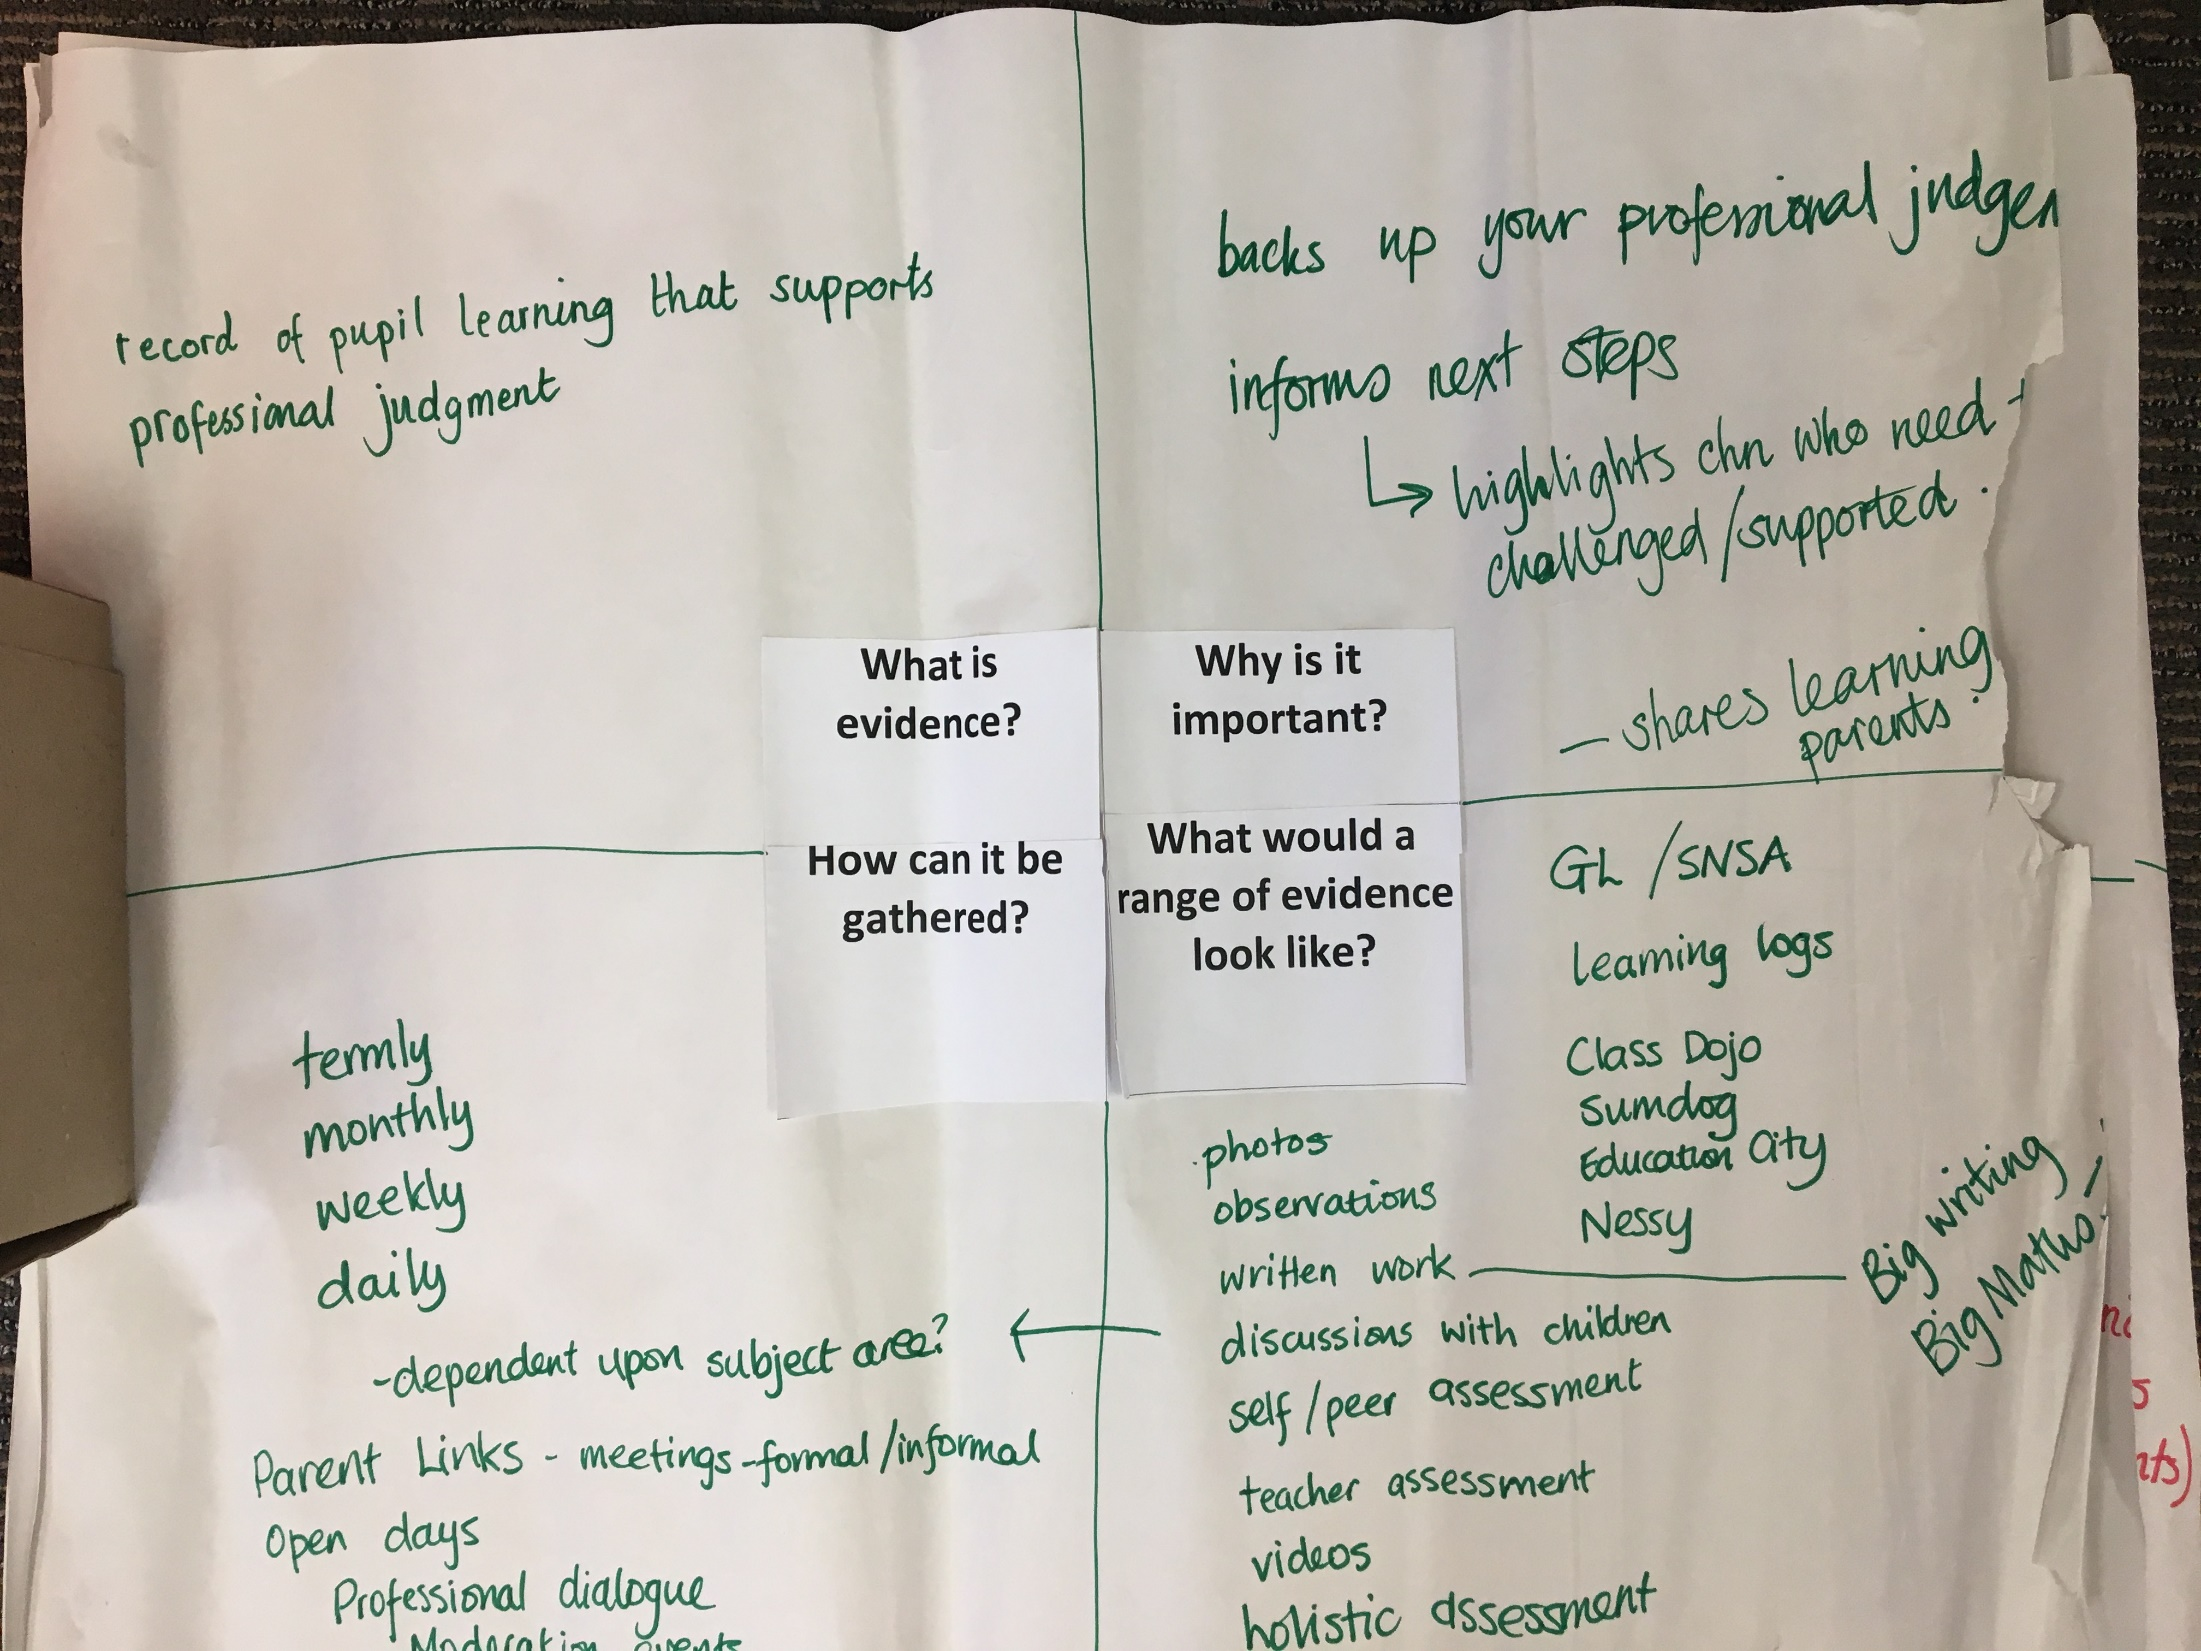 record of pupil learning that supports
professional judgment
What is
evidence?
backs up your professional judgem
informs next steps
highlights chn who need
challenged/supported.
- shares learning
parents.
Why is it
important?
How can it be
gathered?
termly
monthly
weekly
daily
- dependent upon subject area?
Parent Links - meetings - formal/informal
Open days
Professional dialogue
Moderation events
What would a
range of evidence
look like?
GL /SNSA
learning logs
Class Dojo
Sumdog
Education City
Nessy
photos
observations
written work
Big writing
Big Maths
discussions with children
self/peer assessment
teacher assessment
videos
holistic assessment